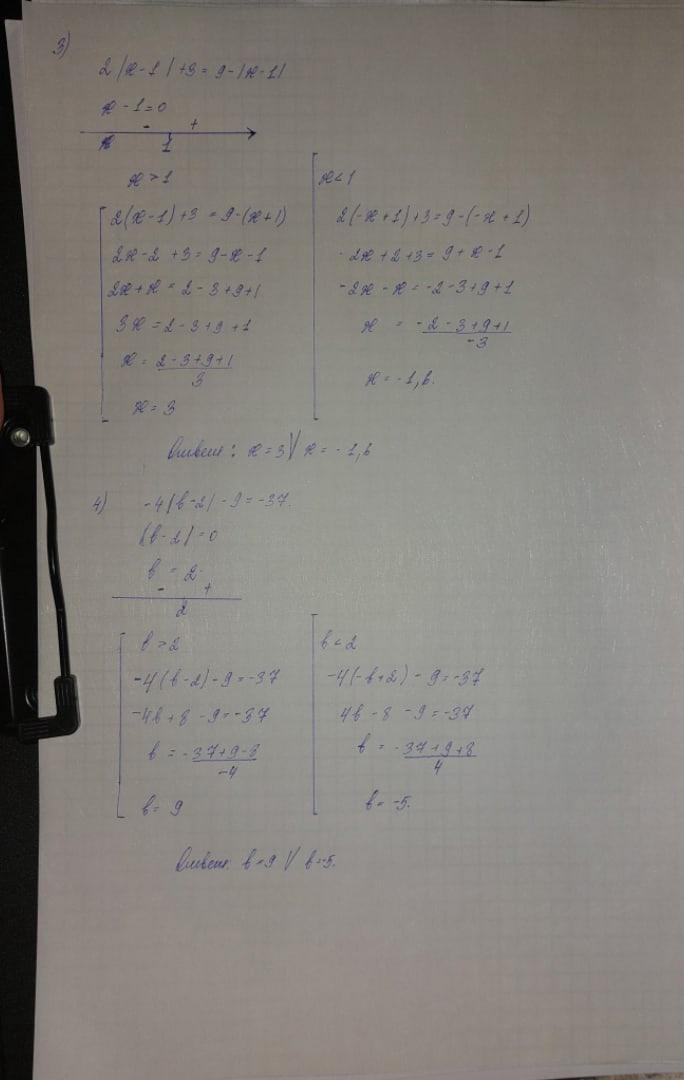 3)
2|x-1|+3=9-|x-1|
x-1=0
- +
x 1
x>1
2(x-1)+3=9-(x+1)
2x-2+3=9-x-1
2x+x=2-3+9+1
3x=2-3+9+1
x=2-3+9+1
3
x=3
x<1
2(-x+1)+3=9-(-x+1)
-2x+2+3=9+x-1
-2x-x=-2-3+9+1
x = -2-3+9+1
-3
x=-1,6.
Ответ: x=3 \/ x=-1,6
4) -4|b-2|-9=-37.
|b-2|=0
b=2
- +
2
b>2
-4(b-2)-9=-37
-4b+8-9=-37
b=-37+9-8
-4
b=9
b<2
-4(-b+2)-9=-37
4b-8-9=-37
b=-37+9+8
4
b=-5.
Ответ: b=9 \/ b=-5.